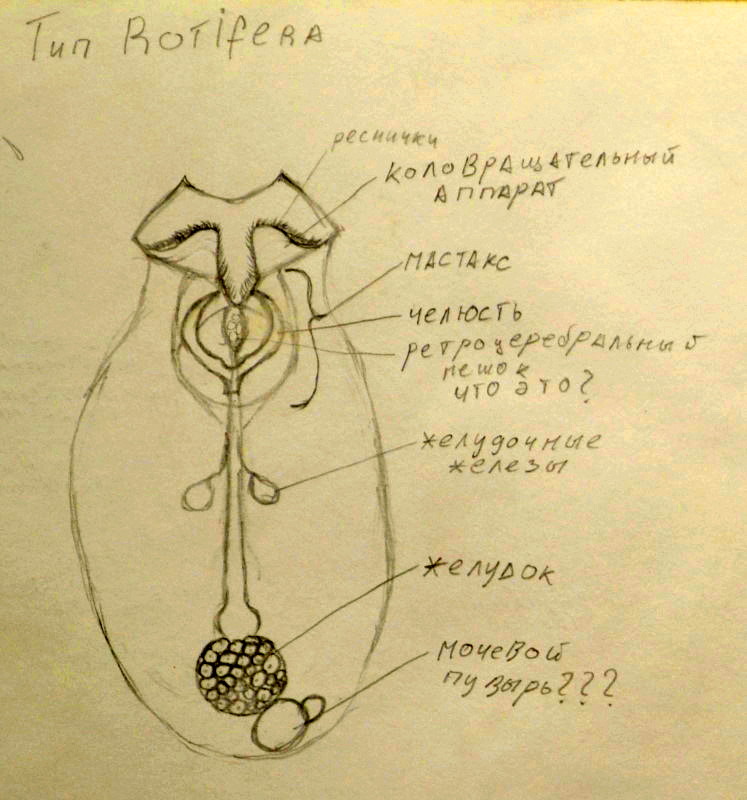 Тип Rotifera
реснички
коловращательный
аппарат
мастакс
челюсть
ретроцеребральный
мешок
что это?
желудочные
железы
желудок
мочевой
пузырь???